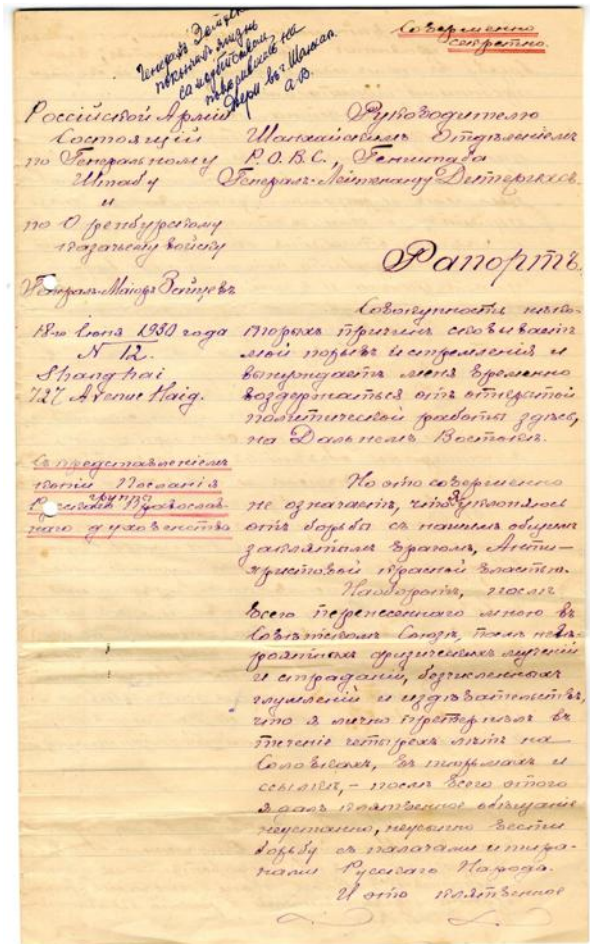 Генералъ Зайцевъ
покончилъ жизнь
самоубійствомъ
повѣсившись на
двери въ г. Шанхаѣ.
А.В.
Совершенно
секретно.
Россійской Арміи
Состоящій
по Генеральному
Штабу
и
по Оренбургскому
казачьему войску
Генералъ-Маіоръ Зайцевъ
18-го Іюня 1930 года
N 12.
Shanghai
727 Avenue Haig.
Съ представленіемъ
копіи Посланія
группы
Русскаго Православ-
наго духовенства
Руководителю
Шанхайскимъ Отдѣленіемъ
Р.О.В.С., Генштаба
Генералъ-Лейтенанту Дитерихсъ.
Рапортъ.
Совокупность нѣко-
торыхъ причинъ сковываетъ
мой порывъ и стремленія и
вынуждаетъ меня временно
воздержаться отъ открытой
политической работы здѣсь,
на Дальнемъ Востокѣ.
Но это совершенно
не означаетъ, что я уклоняюсь
отъ борьбы съ нашимъ общимъ
заклятымъ врагомъ, Анти-
христовой красной властью.
Наоборотъ, послѣ
всего перенесеннаго мною въ
Совѣтскомъ Союзѣ, послѣ невѣ-
роятныхъ физическихъ мученій
и страданій, безчисленныхъ
глумленій и издѣвательствъ,
что я лично претерпѣлъ въ
теченіе четырехъ лѣтъ на
Соловкахъ, въ тюрьмахъ и
ссылкѣ, - послѣ всего этого
я далъ клятвенное обѣщаніе
неустанно, неусыпно вести
борьбу съ палачами и тира-
нами Русскаго Народа.
И это клятвенное